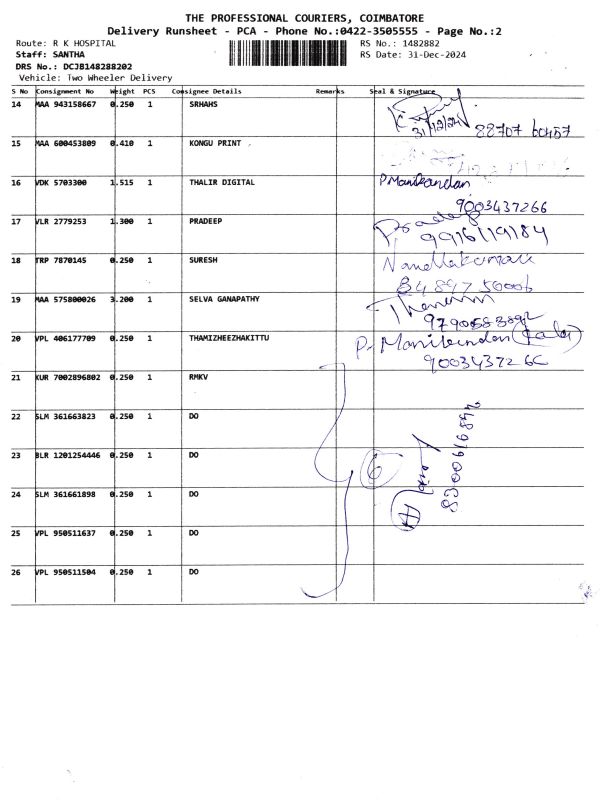 THE PROFESSIONAL COURIERS, COIMBATORE
Delivery Runsheet - PCA - Phone No.:0422-3505555 - Page No.:2
Route: R K HOSPITAL RS No.: 1482882
Staff: SANTHA RS Date: 31-Dec-2024
DRS No.: DCJB148288202
Vehicle: Two Wheeler Delivery
S No Consignment No Weight PCS Consignee Details Remarks Seal & Signature
14 MAA 943158667 0.250 1 SRHAHS
31/12/24 88707 60457
15 MAA 600453809 0.410 1 KONGU PRINT
16 VDK 5703300 1.515 1 THALIR DIGITAL P. Manikandan
9003437266
17 VLR 2779253 1.300 1 PRADEEP Pradeep
9916119184
18 TRP 7870145 0.250 1 SURESH
19 MAA 575800026 3.200 1 SELVA GANAPATHY
20 VPL 406177709 0.250 1 THAMIZHEEZHAKITTU P. Manikandan
9003437266
21 KUR 7002896802 0.250 1 RMKV
22 SLM 361663823 0.250 1 DO
23 BLR 1201254446 0.250 1 DO 6
24 SLM 361661898 0.250 1 DO
25 VPL 950511637 0.250 1 DO
26 VPL 950511504 0.250 1 DO